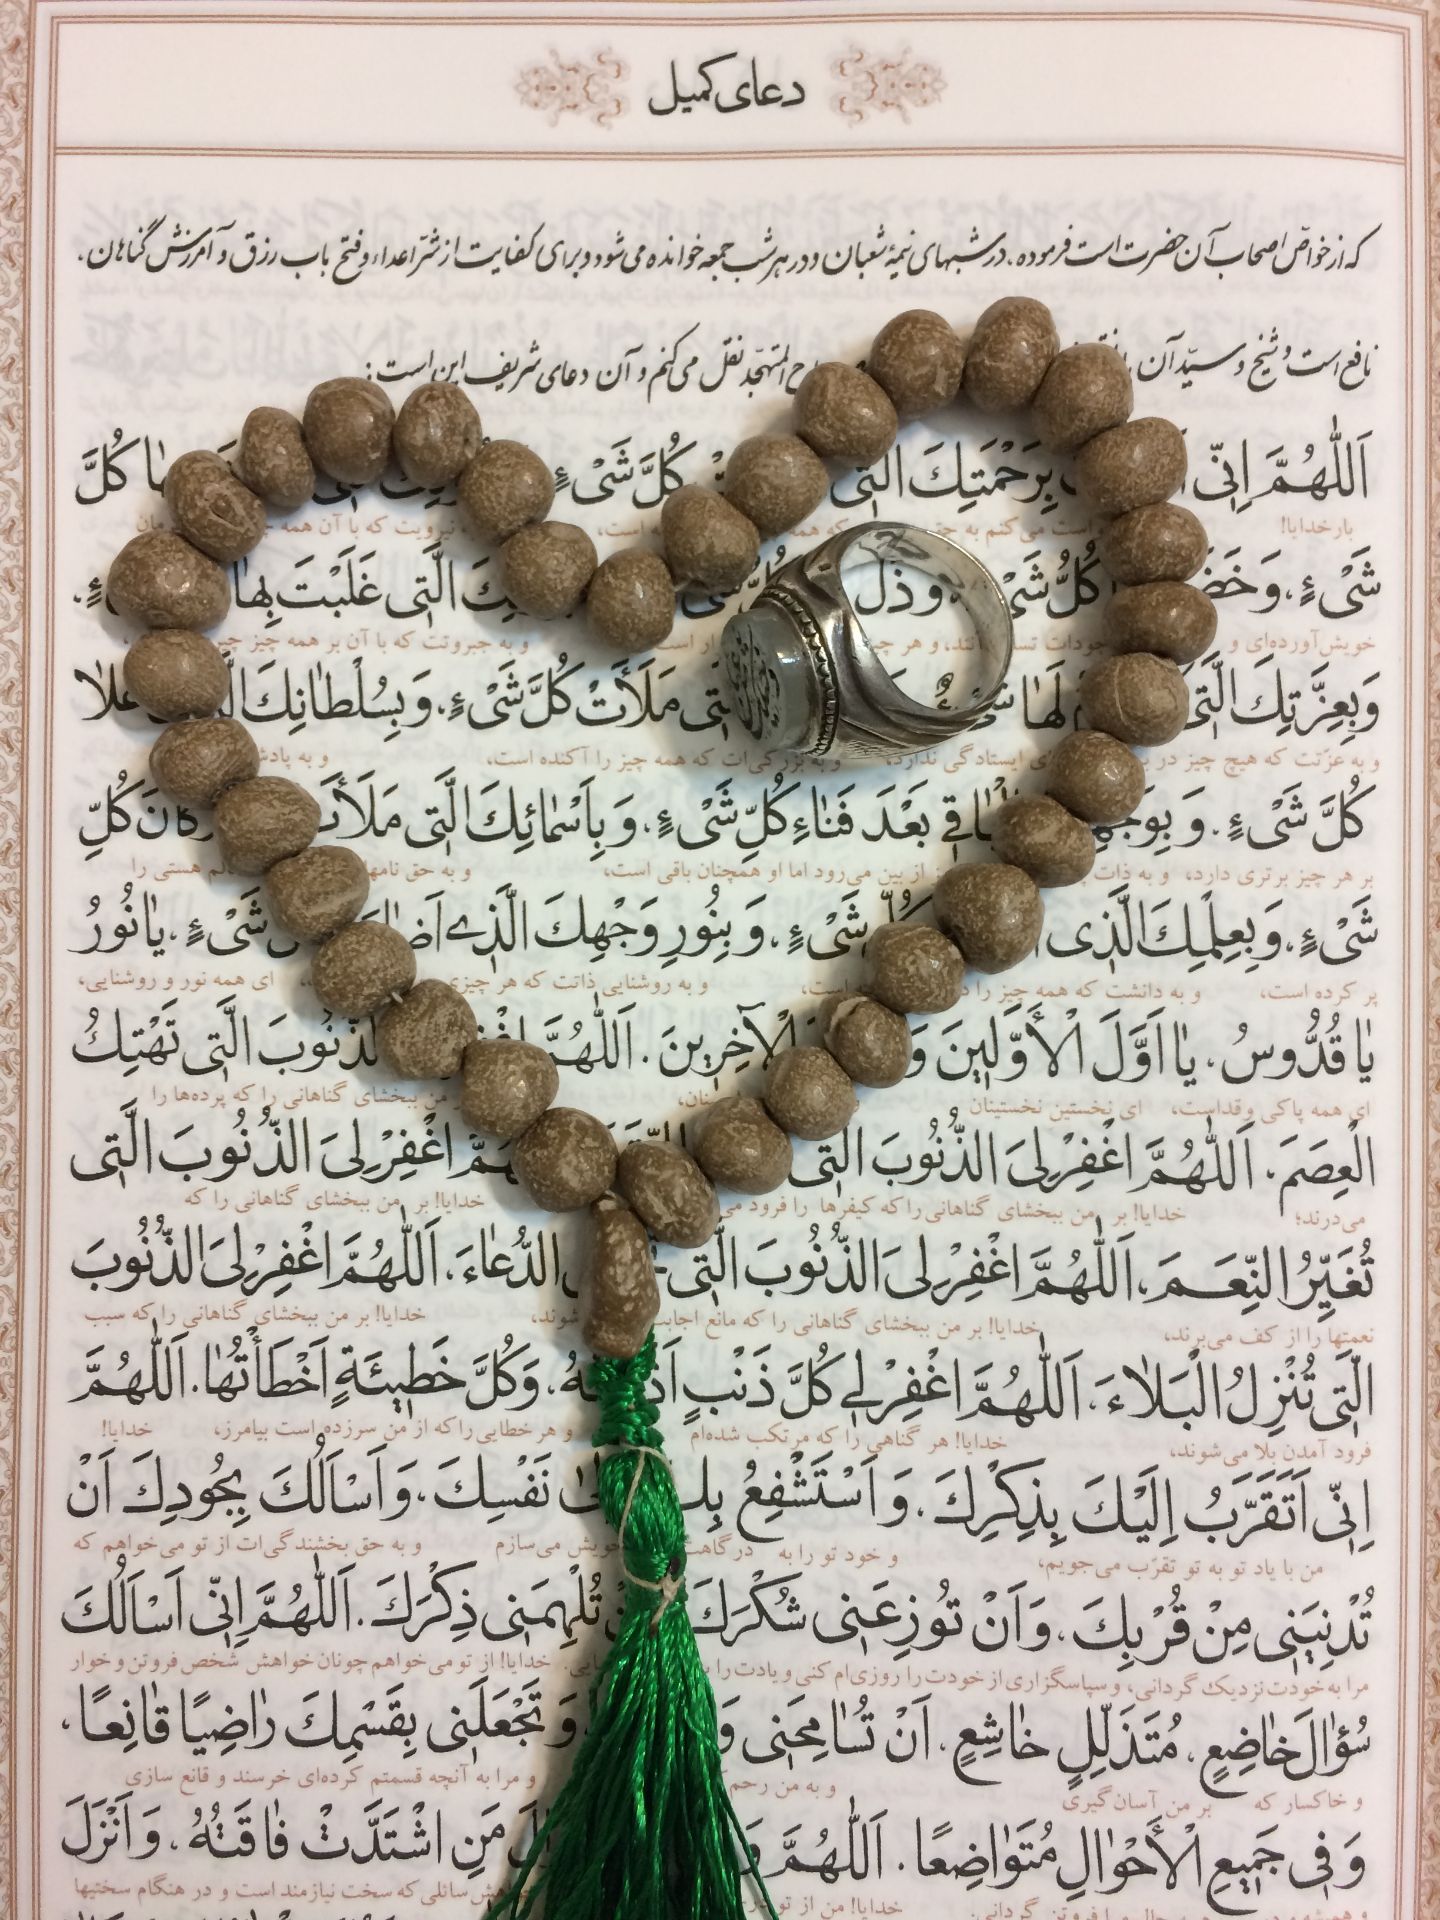 دعای کمیل
که از خواصّ اصحاب آن حضرت است فرموده، در شبهای نیمهٔ شعبان و در هر شب جمعه خوانده می‌شود و برای کفایت از شرّ اعداء و فتح باب رزق و آمرزش گناهان،
نافع است و شیخ و سیّد آن المتهجّد نقل می‌کنم و آن دعای شریف این است:
اَللّٰهُمَّ اِنّی بِرَحْمَتِكَ الَّتی كُلَّ شَیْءٍ كُلَّ
بار خدایا! است می‌کنم به که همه است، نیرویت که با آن همه
شَیْءٍ، وَ خَضَ كُلُّ شَیْ وَ ذَلَّ الَّتی غَلَبْتَ بِهٰا ءٍ،
خویش آورده‌ای و و هر و به جبروتت که با آن بر همه چیز
وَ بِعِزَّتِكَ الَّتی لَهٰا شَیْءٌ مَلَأَتْ كُلَّ شَیْءٍ، وَ بِسُلْطٰانِكَ عَلاٰ
و به عزّتت که هیچ چیز در ایستادگی ندارد، و به بزرگی‌ات که همه چیز را آکنده است، و به
كُلَّ شَیْءٍ، وَ بِوَجْهِ الْبٰاقی بَعْدَ فَنٰاءِ كُلِّ شَیْءٍ، وَ بِاَسْمٰائِكَ الَّتی مَلَأَتْ كُلِّ
بر هر چیز برتری دارد، و به ذات از بین می‌رود اما او همچنان باقی است، و به حق هستی را
شَیْءٍ، وَ بِعِلْمِكَ الَّذی شَیْءٍ، وَ بِنُورِ وَجْهِكَ الَّذی شَیْءٍ، یٰا نُورُ
پر کرده است، و به دانشت که همه چیز را است، و به روشنایی ذاتت که هر چیزی ای همه نور و روشنایی،
یٰا قُدُّوسُ، یٰا اَوَّلَ الْأَوَّلینَ وَ الْآخِرینَ. اَللّٰهُمَّ الذُّنُوبَ الَّتی تَهْتِكُ
ای همه پاکی و قداست، ای نخستین نخستینان من ببخشای گناهانی را که پرده‌ها را
الْعِصَمَ. اَللّٰهُمَّ اغْفِرْ لِیَ الذُّنُوبَ الَّتی اغْفِرْ لِیَ الذُّنُوبَ الَّتی
می‌درند؛ خدایا! بر من ببخشای گناهانی را که کیفرها را فرود خدایا! بر من ببخشای گناهانی را که
تُغَیِّرُ النِّعَمَ، اَللّٰهُمَّ اغْفِرْ لِیَ الذُّنُوبَ الَّتی الدُّعٰاءَ، اَللّٰهُمَّ اغْفِرْ لِیَ الذُّنُوبَ
نعمتها را از کف می‌برند، خدایا! بر من ببخشای گناهانی را که مانع اجابت شوند، خدایا! بر من ببخشای گناهانی را که سبب
الَّتی تُنْزِلُ الْبَلاٰءَ، اَللّٰهُمَّ اغْفِرْ لی كُلَّ ذَنْبٍ وَ كُلَّ خَطیئَةٍ اَخْطَأْتُهٰا. اَللّٰهُمَّ
فرود آمدن بلا می‌شوند، خدایا! هر گناهی را که مرتکب شده‌ام و هر خطایی را که از من سرزده است بیامرز، خدایا!
اِنّی اَتَقَرَّبُ اِلَیْكَ بِذِكْرِكَ، وَ اَسْتَشْفِعُ نَفْسِكَ، وَ اَسْأَلُكَ بِجُودِكَ اَنْ
من با یاد تو به تو تقرّب می‌جویم، و خود تو را به درگاهت خویش می‌سازم و به حق بخشندگی‌ات از تو می‌خواهم که
تُدْنِیَنی مِنْ قُرْبِكَ، وَ اَنْ تُوزِعَنی شُكْرَكَ تُلْهِمَنی ذِكْرَكَ. اَللّٰهُمَّ اِنّی اَسْأَلُكَ
مرا به خودت نزدیک گردانی، و سپاسگزاری از خودت را روزی‌ام کنی و یادت را خدایا! از تو می‌خواهم چونان خواهش شخص فروتن و خوار
سُؤٰالَ خٰاضِعٍ، مُتَذَلِّلٍ خٰاشِعٍ، اَنْ تُسٰامِحَنی وَ تَجْعَلَنی بِقَسْمِكَ رٰاضِیًا قٰانِعًا،
و خاکسار که بر من آسان گیری و به من و مرا به آنچه قسمتم کرده‌ای خرسند و قانع سازی
وَ فی جَمیعِ الْأَحْوٰالِ مُتَوٰاضِعًا. اَللّٰهُمَّ مَنِ اشْتَدَّتْ فٰاقَتُهُ، وَ اَنْزَلَ
فروتن گردانی. خدایا! من از تو سائلی که سخت نیازمند است و در هنگام سختیها